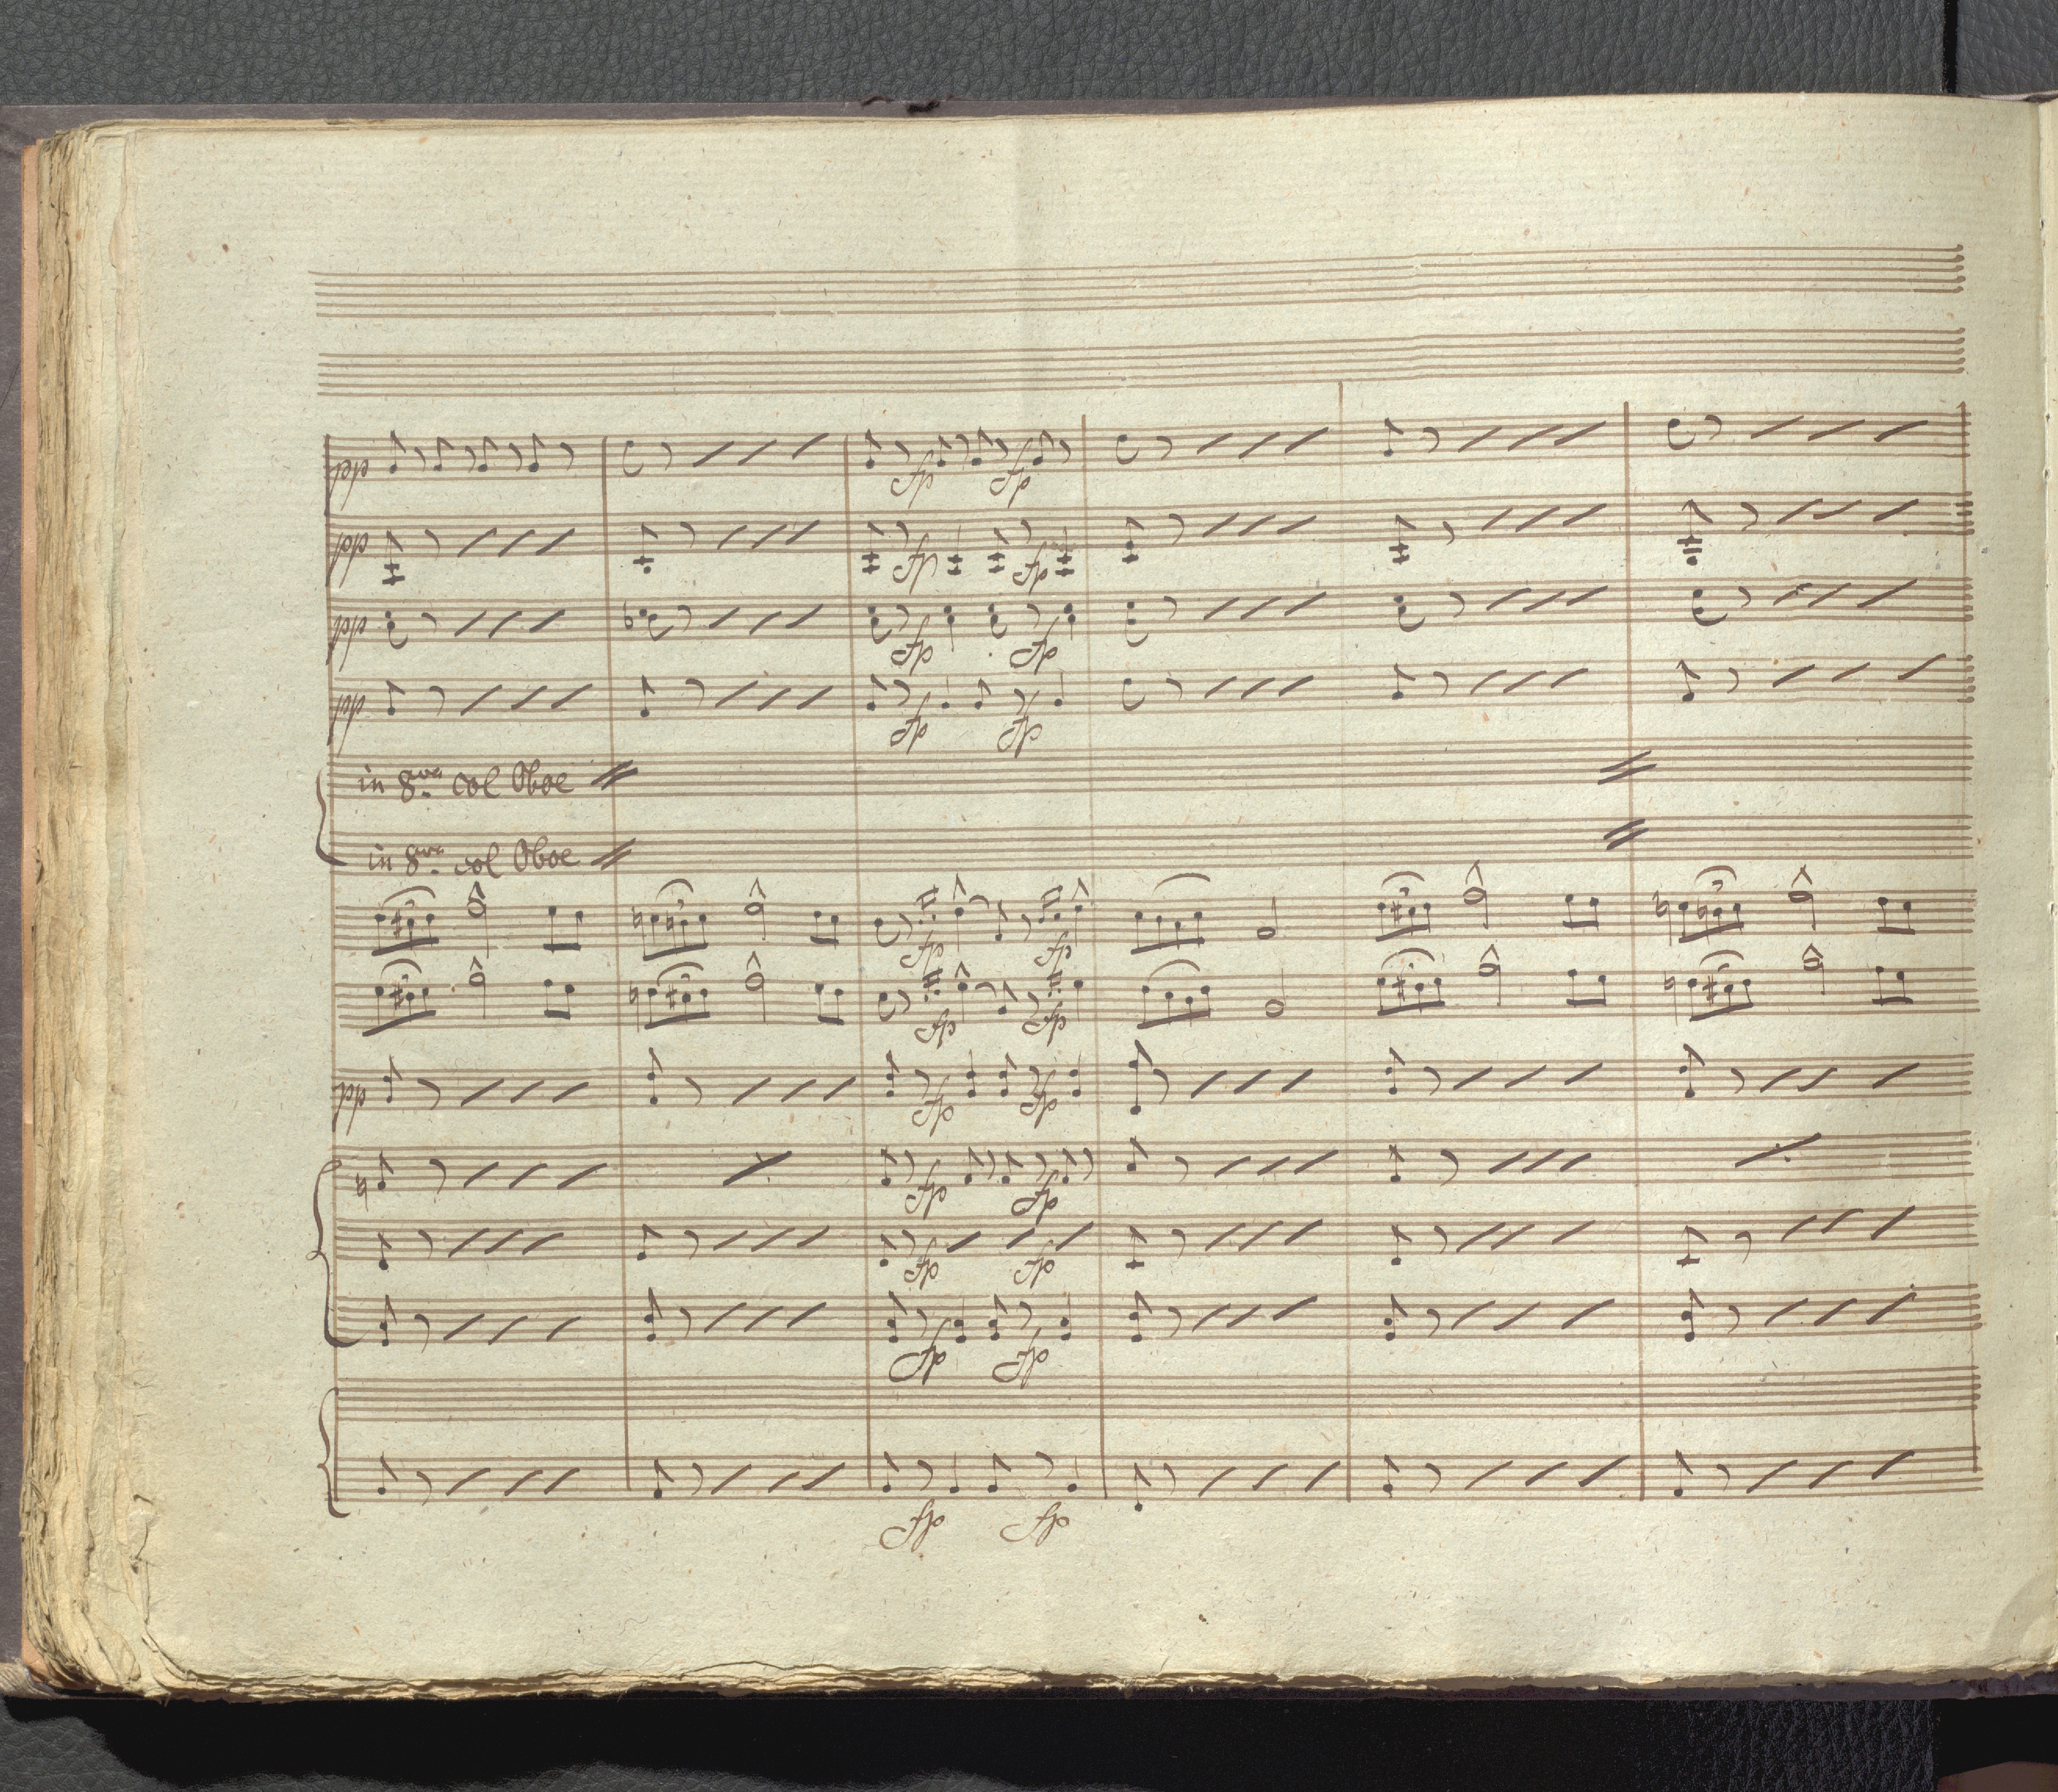 pp
fp fp
pp
fp fp
pp
fp fp
pp
fp fp
in 8va col Oboe
in 8va col Oboe
3 3 fp fp 3 3
3 3 fp fp 3 3
pp
fp fp
fp fp
fp fp
fp fp
fp fp